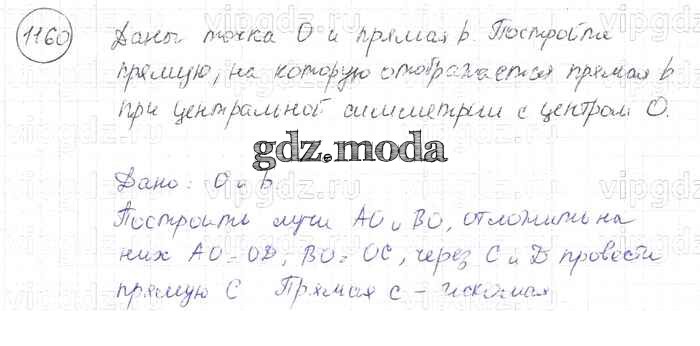 1160 Даны точка О и прямая b. Постройте
прямую, на которую отображается прямая b
при центральной симметрии с центром О.
gdz.moda
Дано: О и b.
Построить лучи АО и ВО, отложить на
них АО = OD; ВО = ОС, через С и D провести
прямую С Прямая с - искомая